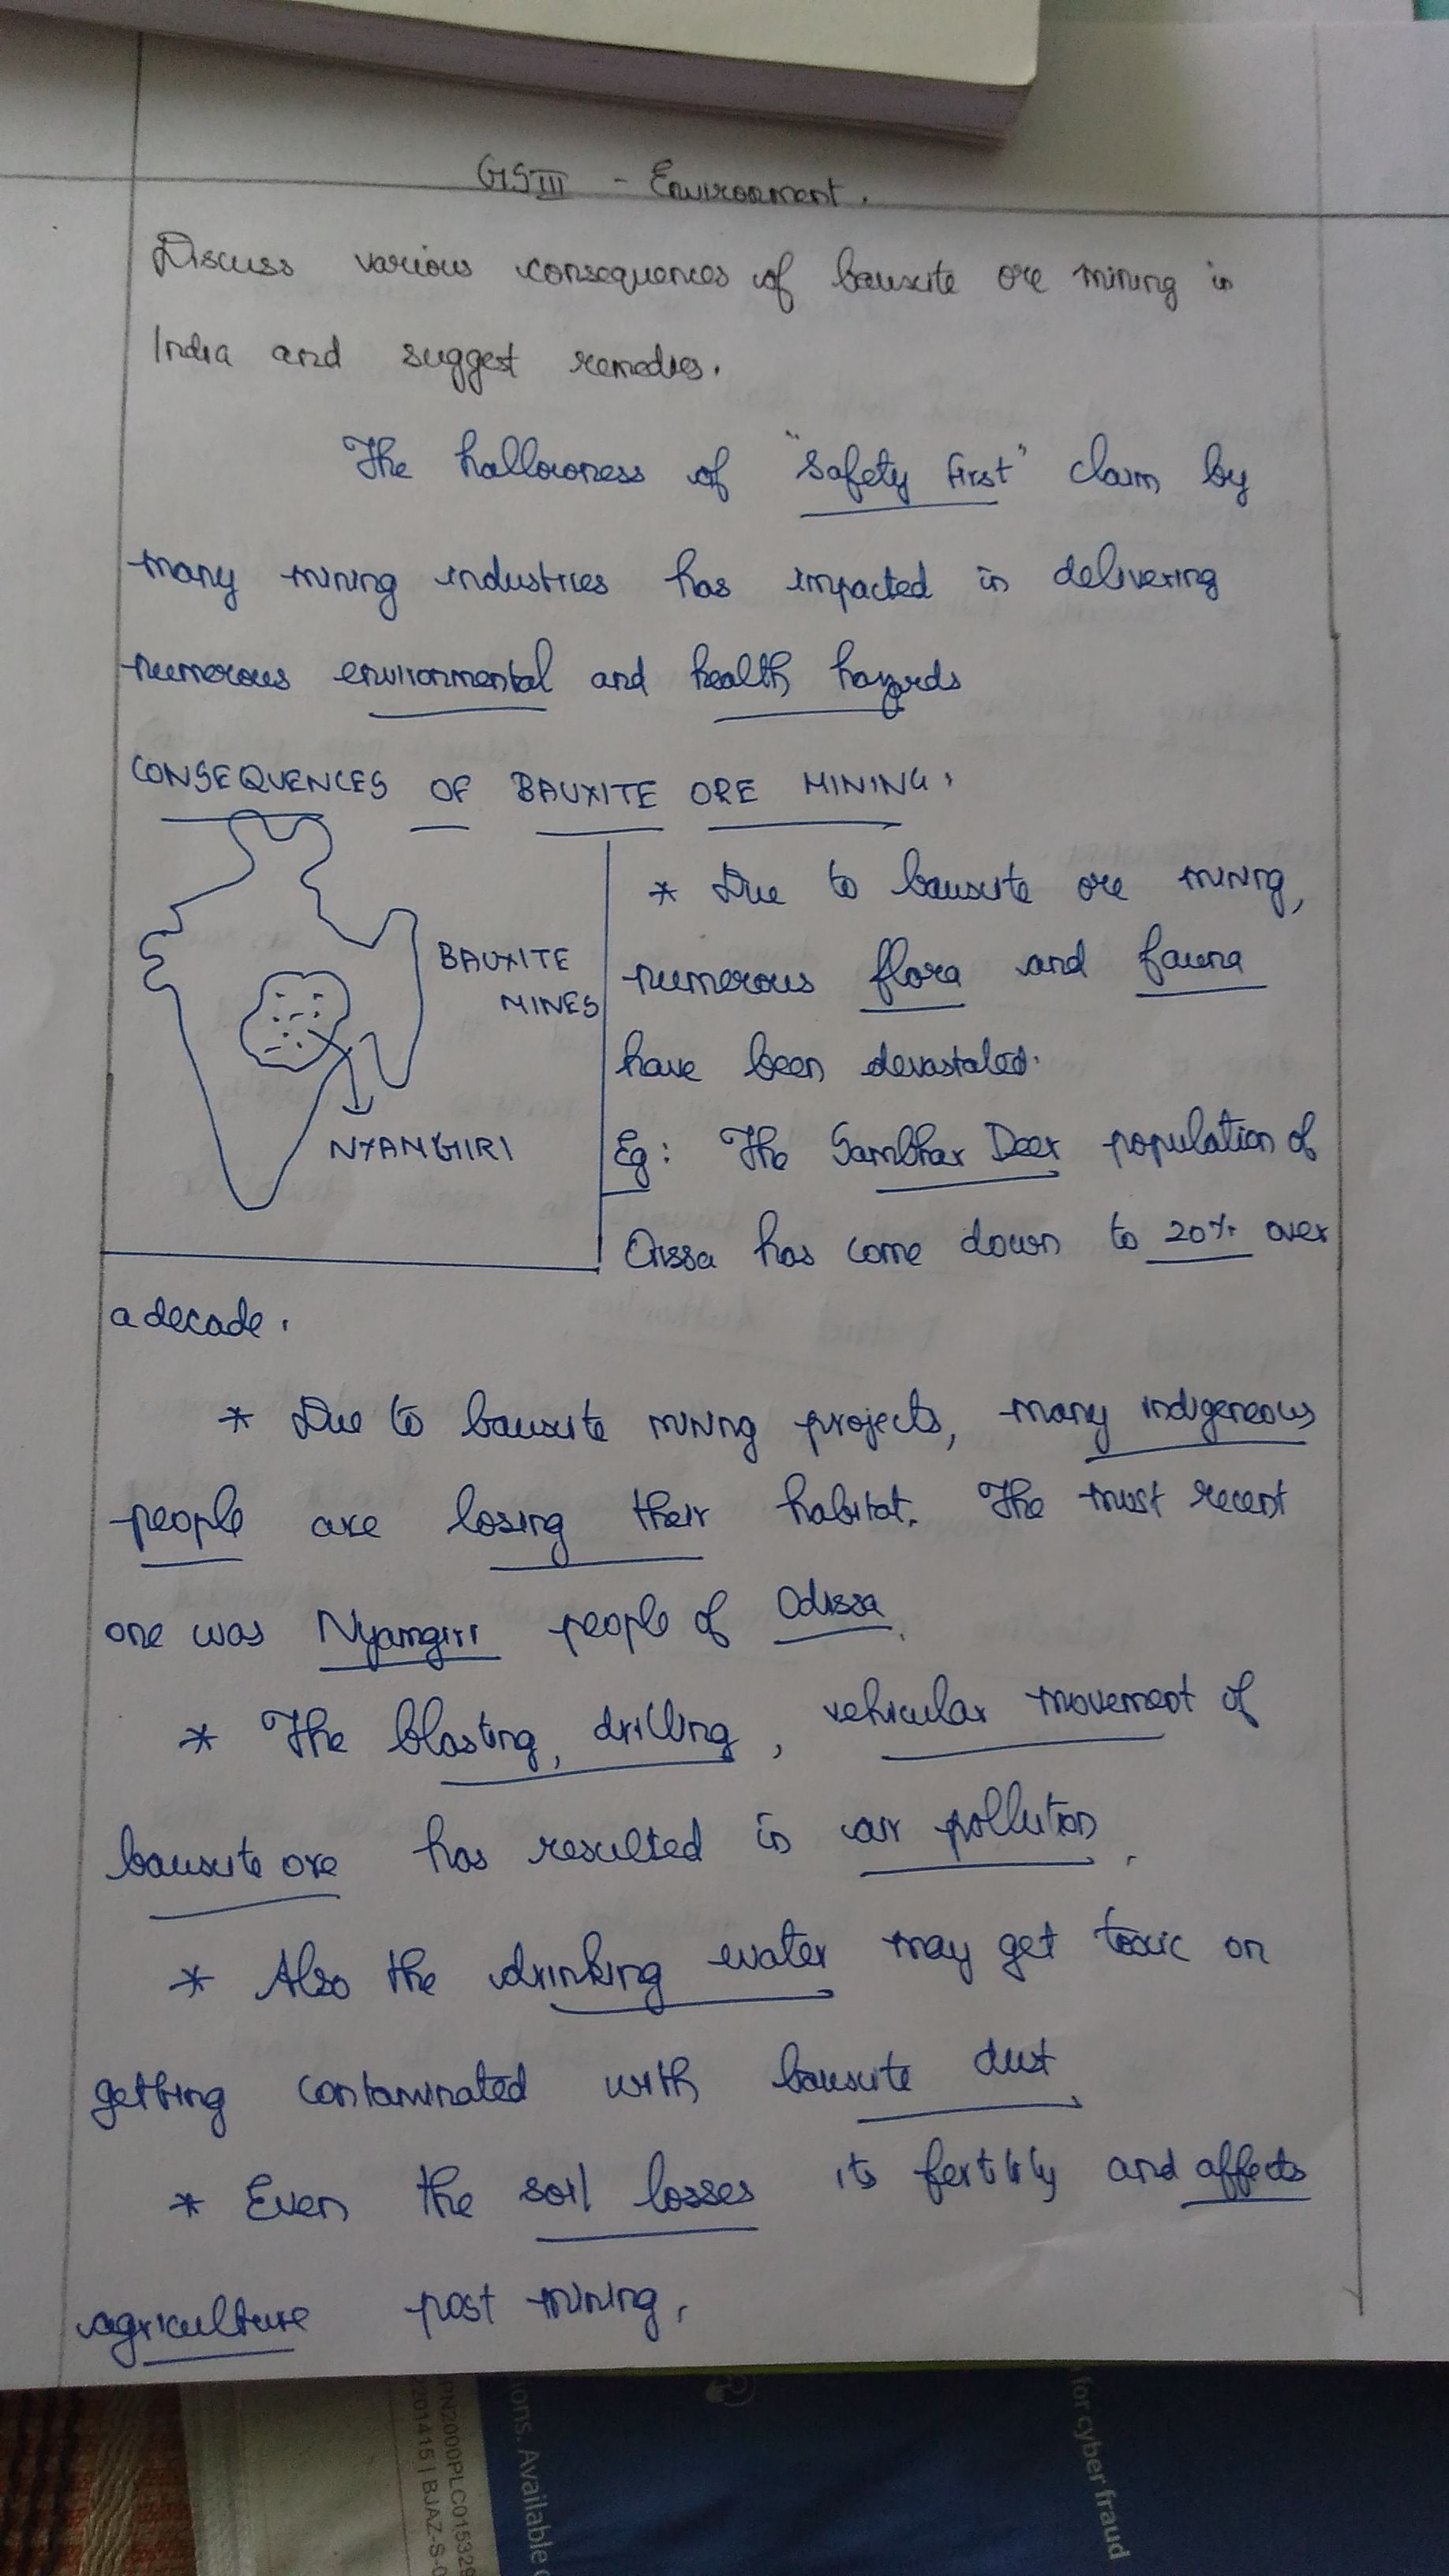 GS III - Environment.
Discuss various consequences of bauxite ore mining in
India and suggest remedies.
The hallowness of "safety first" claim by
many mining industries has impacted in delivering
numerous environmental and health hazards
CONSEQUENCES OF BAUXITE ORE MINING.
BAUXITE
MINES
NYAMGIRI
* Due to bauxite ore mining,
numerous flora and fauna
have been devastated.
Eg: The Sambhar Deer population of
Orissa has come down to 20% over
a decade.
* Due to bauxite mining projects, many indigeneous
people are losing their habitat. The most recent
one was Nyamgiri people of Odissa.
* The blasting, drilling, vehicular movement of
bauxite ore has resulted in air pollution.
* Also the drinking water may get toxic on
getting contaminated with bauxite dust.
* Even the soil losses its fertility and affects
agriculture post mining.
PN2000PLC015329
2201415 | BJAZ-S-0
ions. Available
for cyber fraud